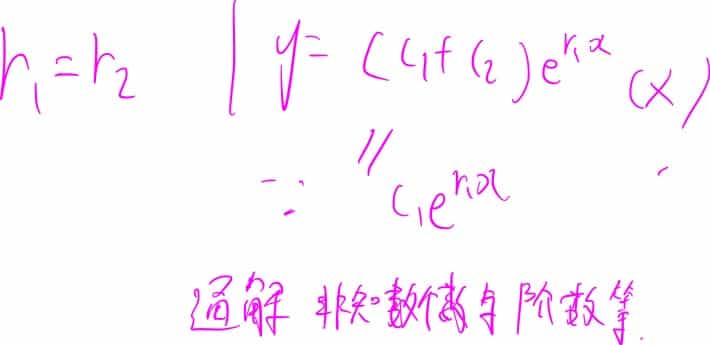 r₁=r₂ | y= (C₁+C₂)e^{r₁x} (×)
∵ ‖ C₁e^{r₁x}
通解 非知数个数与阶数等.